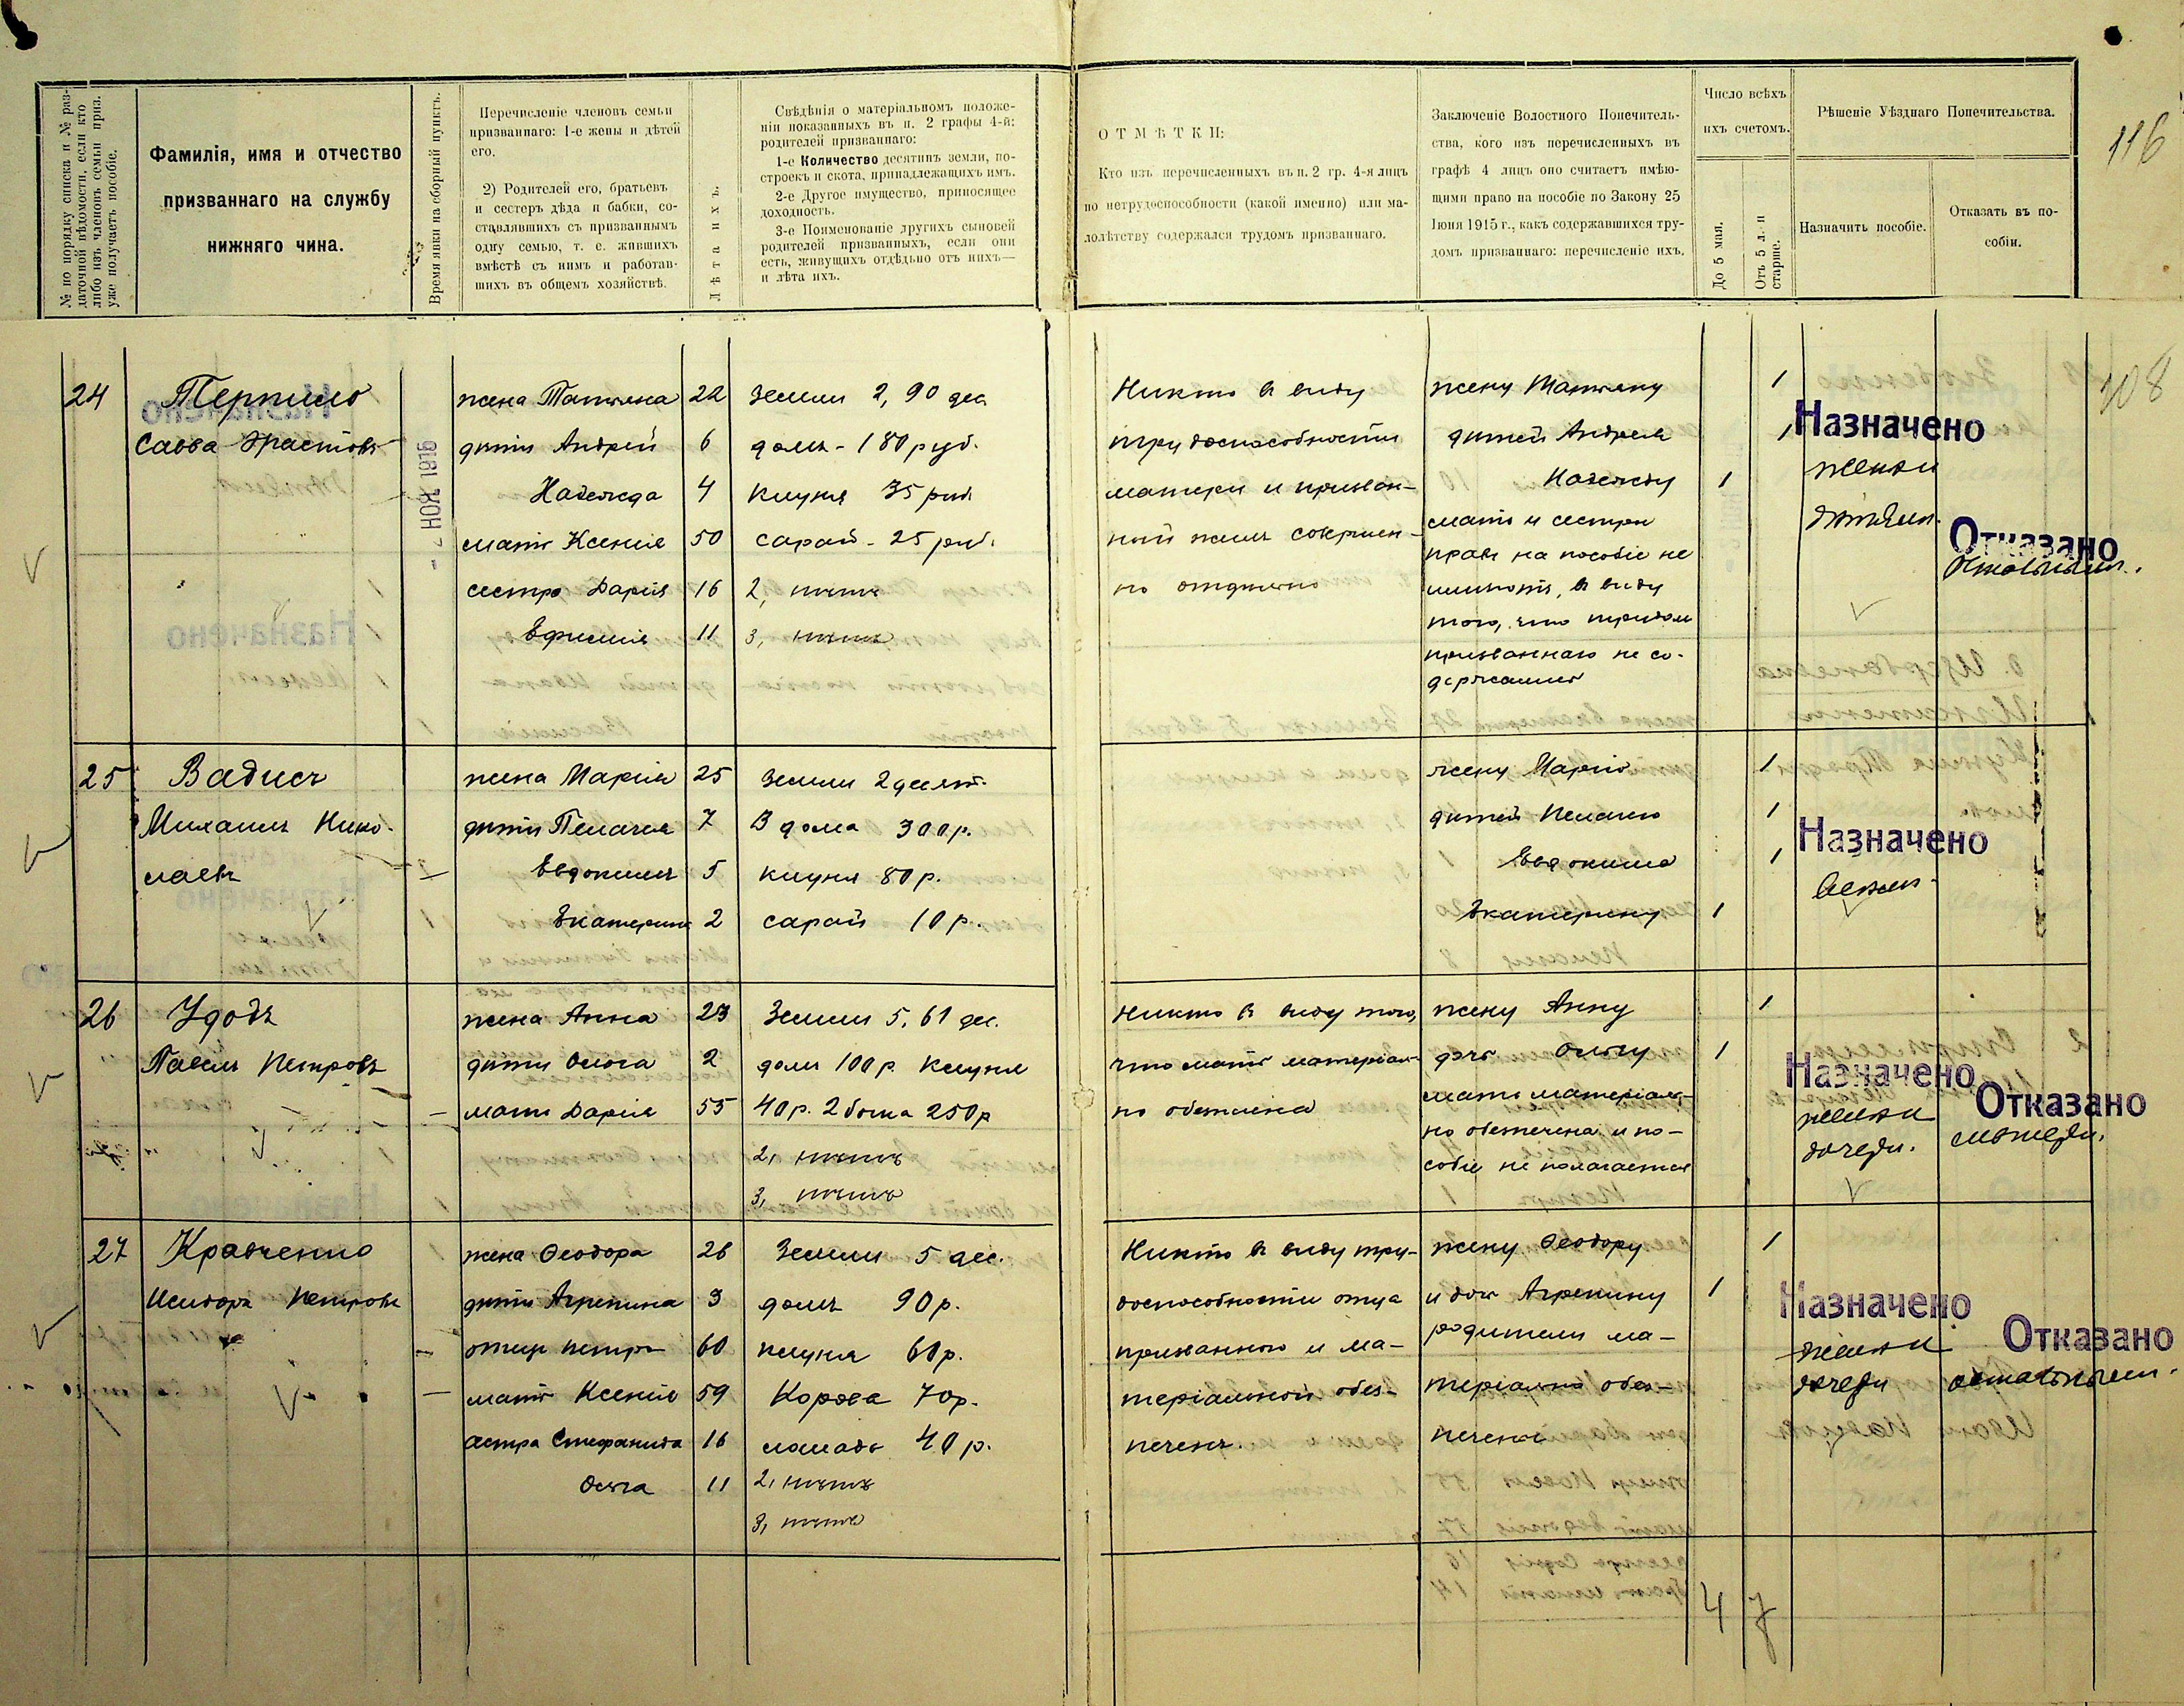 № по порядку списка и № раз-
даточной вѣдомости, если кто
либо изъ членовъ семьи приз.
уже получаетъ пособіе.
Фамилія, имя и отчество
призваннаго на службу
нижняго чина.
Время явки на сборный пунктъ.
Перечисленіе членовъ семьи
призваннаго: 1-е жены и дѣтей
его.
2) Родителей его, братьевъ
и сестеръ дѣда и бабки, со-
ставлявшихъ съ призваннымъ
одну семью, т. е. жившихъ
вмѣстѣ съ нимъ и работав-
шихъ въ общемъ хозяйствѣ.
Лѣта ихъ.
Свѣдѣнія о матеріальномъ положе-
ніи показанныхъ въ п. 2 графы 4-й:
родителей призваннаго:
1-е Количество десятинъ земли, по-
строекъ и скота, принадлежащихъ имъ.
2-е Другое имущество, приносящее
доходность.
3-е Поименованіе другихъ сыновей
родителей призванныхъ, если они
есть, живущихъ отдѣльно отъ нихъ—
и лѣта ихъ.
ОТМѢТКИ:
Кто изъ перечисленныхъ въ п. 2 гр. 4-я лицъ
по нетрудоспособности (какой именно) или ма-
лолѣтству содержался трудомъ призваннаго.
Заключеніе Волостного Попечитель-
ства, кого изъ перечисленныхъ въ
графѣ 4 лицъ оно считаетъ имѣю-
щими право на пособіе по Закону 25
Іюня 1915 г., какъ содержавшихся тру-
домъ призваннаго: перечисленіе ихъ.
Число всѣхъ
ихъ счетомъ.
До 5 мая.
Отъ 5 л. и
старше.
Рѣшеніе Уѣзднаго Попечительства.
Назначить пособіе.
Отказать въ по-
собіи.
116
108
24
Терпило
Савва Эрастовъ
НОЯ 1916
жена Татьяна 22
дѣти Андрей 6
Надежда 4
мать Ксенія 50
сестра Дарія 16
Ефимія 11
Земли 2,90 дес.
домъ - 180 руб.
кухня 35 руб.
сарай - 25 руб.
2, нѣтъ
3, нѣтъ
Никто въ виду
трудоспособности
матери и призван-
ный жилъ совершен-
но отдѣльно
жену Татьяну
дѣтей Андрея
Надежду
мать и сестры
права на пособіе не
имѣютъ, въ виду
того, что трудом
призваннаго не со-
держались
1
1
1
Назначено
жене и
дѣтямъ.
Отказано
остальнымъ.
25
Вадисъ
Михаилъ Нико-
лаевъ
жена Марія 25
дѣти Пелагея 7
Евдокимъ 5
Екатерина 2
Земли 2 десят.
3 дома 300 р.
кухня 80 р.
сарай 10 р.
жену Марію
дѣтей Пелагею
Евдокима
Екатерину
1
1
1
1
Назначено
всѣмъ.
26
Удодъ
Павелъ Петровъ
жена Анна 23
дѣти Ольга 2
мать Дарія 55
Земли 5,61 дес.
домъ 100 р. кухня
40 р. 2 быка 250 р
2, нѣтъ
3, нѣтъ
Никто въ виду того,
что мать матеріаль-
но обезпечена
жену Анну
дочь Ольгу
мать матеріаль-
но обезпечена и по-
собіе не полагается
1
1
Назначено
жене и
дочери.
Отказано
матери.
27
Кравченко
Исидоръ Петровъ
жена Ѳеодора 26
дѣти Агрепина 3
отецъ Петръ 60
мать Ксенія 59
сестра Стефанида 16
Ольга 11
Земли 5 дес.
домъ 90 р.
кухня 60 р.
Корова 70 р.
лошадь 40 р.
2, нѣтъ
3, нѣтъ
Никто въ виду тру-
доспособности отца
призванного и ма-
теріальной обез-
печенъ.
жену Ѳеодору
и дочь Агрепину
родители ма-
теріально обез-
печены
1
1
Назначено
жене и
дочери
Отказано
остальнымъ.
4 7